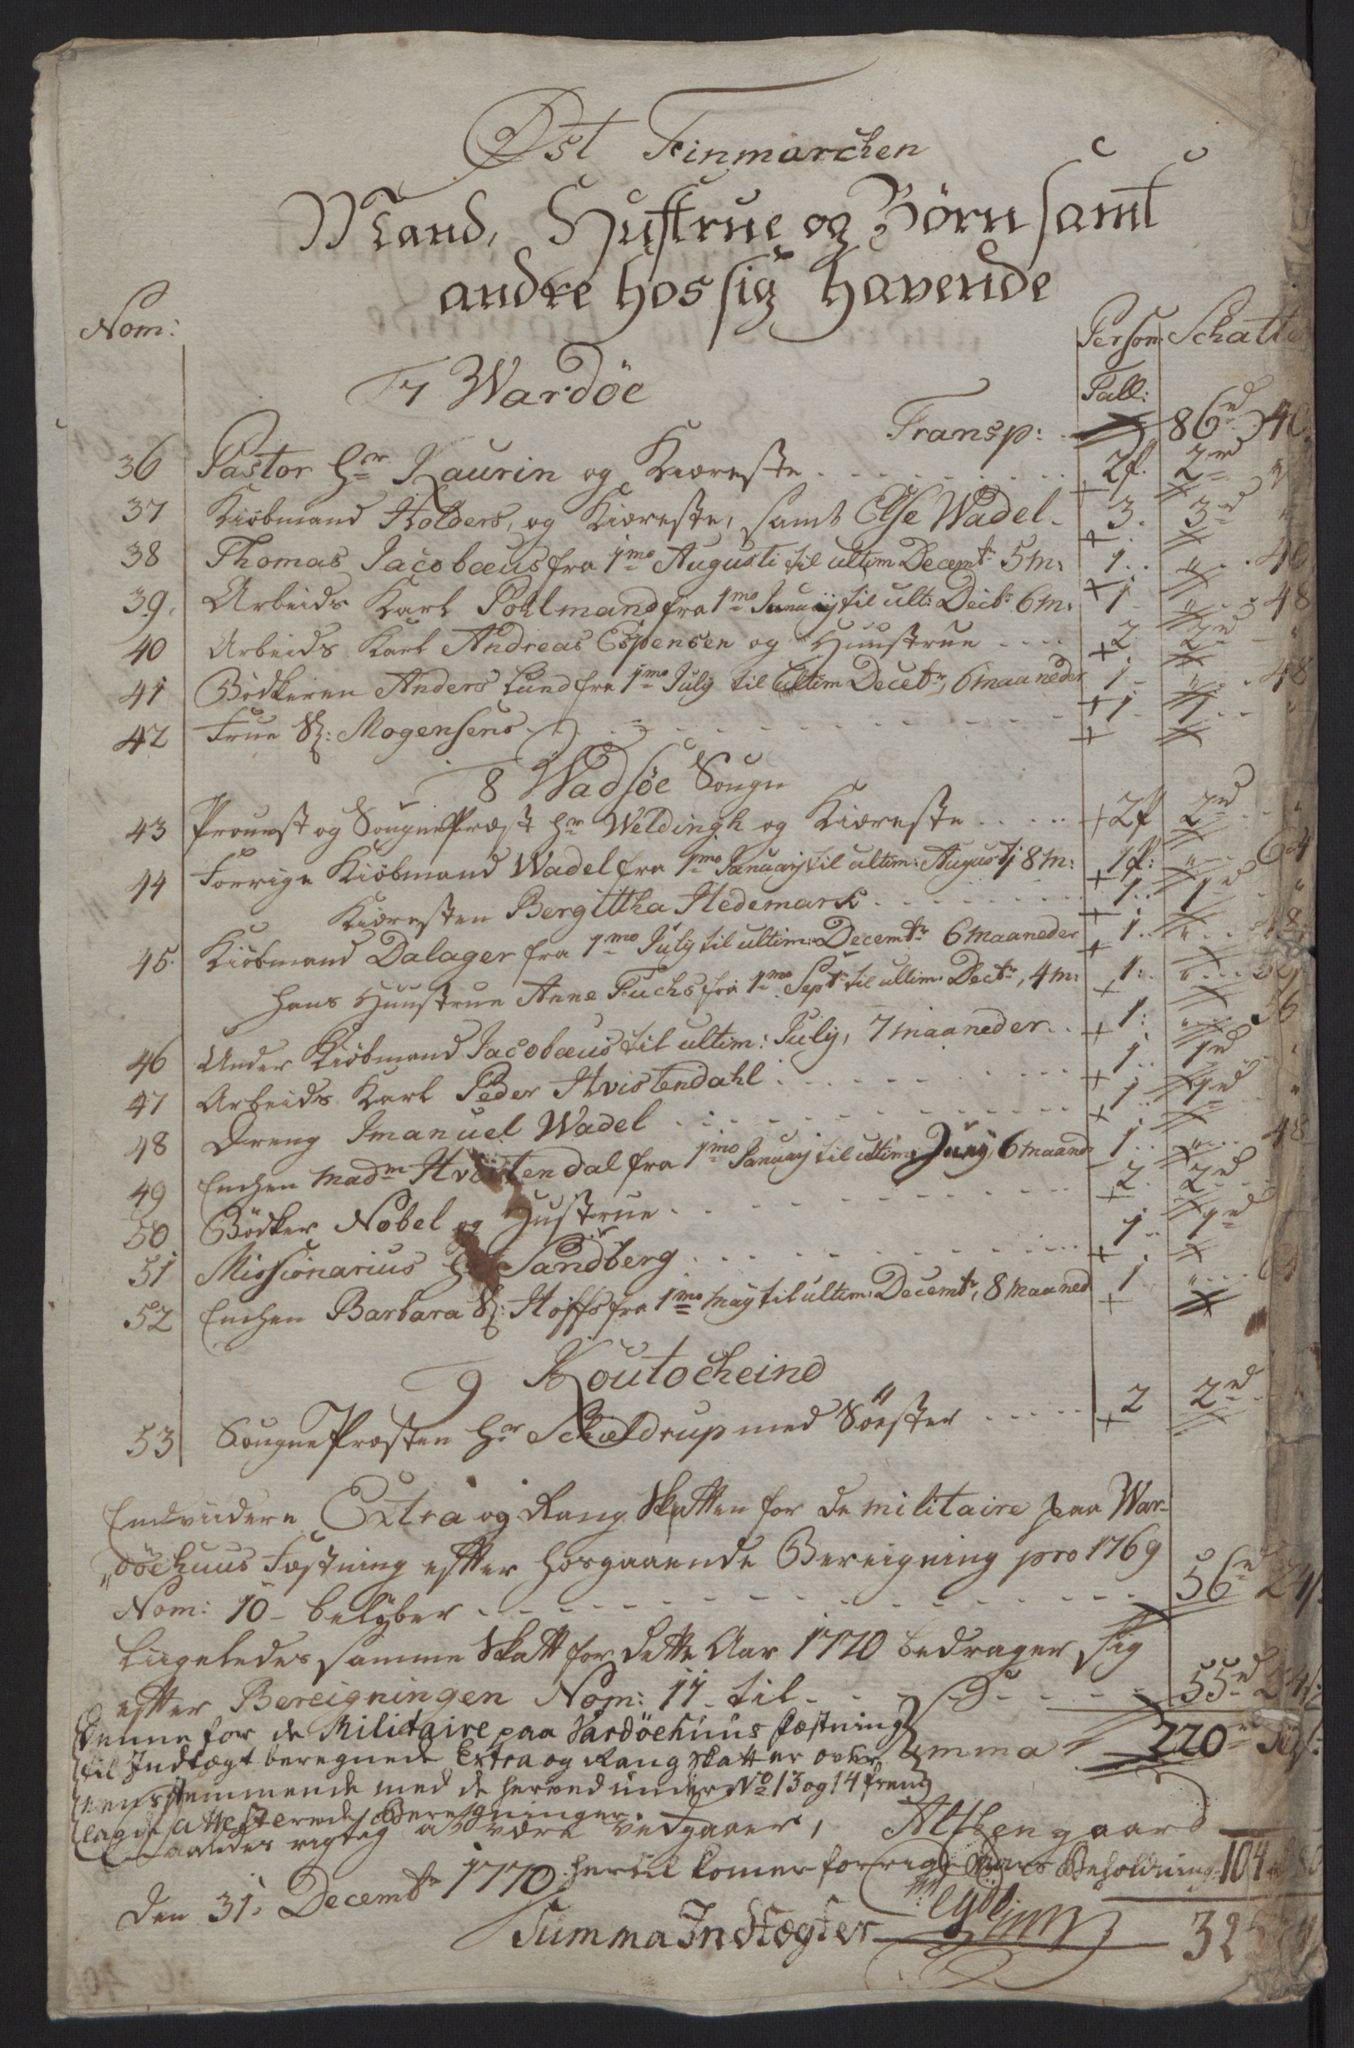 Øst Finmarchen
Mand, Hustrue og Börn samt
andre hos sig havende
Nom: Person Schatte
Tall:
7 Wardöe
Transp: 86 rd 40
36 Pastor Hr Laurin og Kiæreste 2 p. 2 rd
37 Kiöbmand Holders, og Kiæreste, samt Else Wadel 3. 3 rd
38 Thomas Jacobæus fra 1mo Augusti til ultim Decembr 5 m: 1. " 40
39. Arbeids Karl Pollmand fra 1mo til ult: Decbr 6 m: 1 " 48
40 Arbeids Karl Andreas Espensen og Huustrue 2 2 rd
41 Bödkeren Anders Lund fra 1mo July til Ultim Decebr, 6 maaneder 1 " 48
42 Frue Sl: Mogensens 1 1
8 Wadsöe Sougn
43 Prouvst og SougnePræst Hr Weldingh og Kiæreste 2 p 2 rd
44 Forrige Kiöbmand Wadel fra 1mo Januarij til ultim: Augustj 8 m: 1 p: " 64
Kiæresten Bergittha Hedemark 1. 1 rd "
45. Kiöbmand Dalager fra 1mo July til ultim: Decembr 6 maaneder 1. " 48
Hans Huustrue Anne Fuchs fra 1mo Septr til ultim: Decbr, 4 m: 1:
46 Under Kiöbmand Jacobæus til ultim: July, 7 maaneder 1: " 56
47 Arbeids Karl Peder Hvistendahl 1. 1 rd
48 Dreng Imanuel Wadel 1 1 rd "
49 Enchen Madm Hvistendal fra 1mo Januarij til ultim: Junij 6 maand 1. " 48
50 Bödker Nobel og Hustrue 2. 2 rd
51 Missionarius Hr Sandberg 1 1 rd
52 Enchen Barbara Sl: Hoffs fra 1mo May til ultim: Decembr, 8 maaned 1
9 Koutocheind
53 SougnePræsten Hr Schieldrup med Söester 2 2 rd
Endviidere Extra og Rang Skatten for de militaire paa War-
döehuus Fæstning efter hosgaaende Bereigning pro 1769
Nom: 10 belöber 56 rd 24
Liigeledes samme Skatt for dette Aar 1770 bedrager sig
efter Bereigningen Nom: 11 til 55 rd 24
Summa 220
Denne for de Militaire paa Vardöehuus Fæstning
til Indtægt beregnede Extra og Rang Skatt er over
eensstemmende med de herved under No 13 og 14 frem
lagde attesterede Beregninger.
saaledes rigtig at være vedgaaer, Altengaard
den 31. Decembr 1770
hertil komer forrige Aars Beholdning 104
Summa Indtægter 325